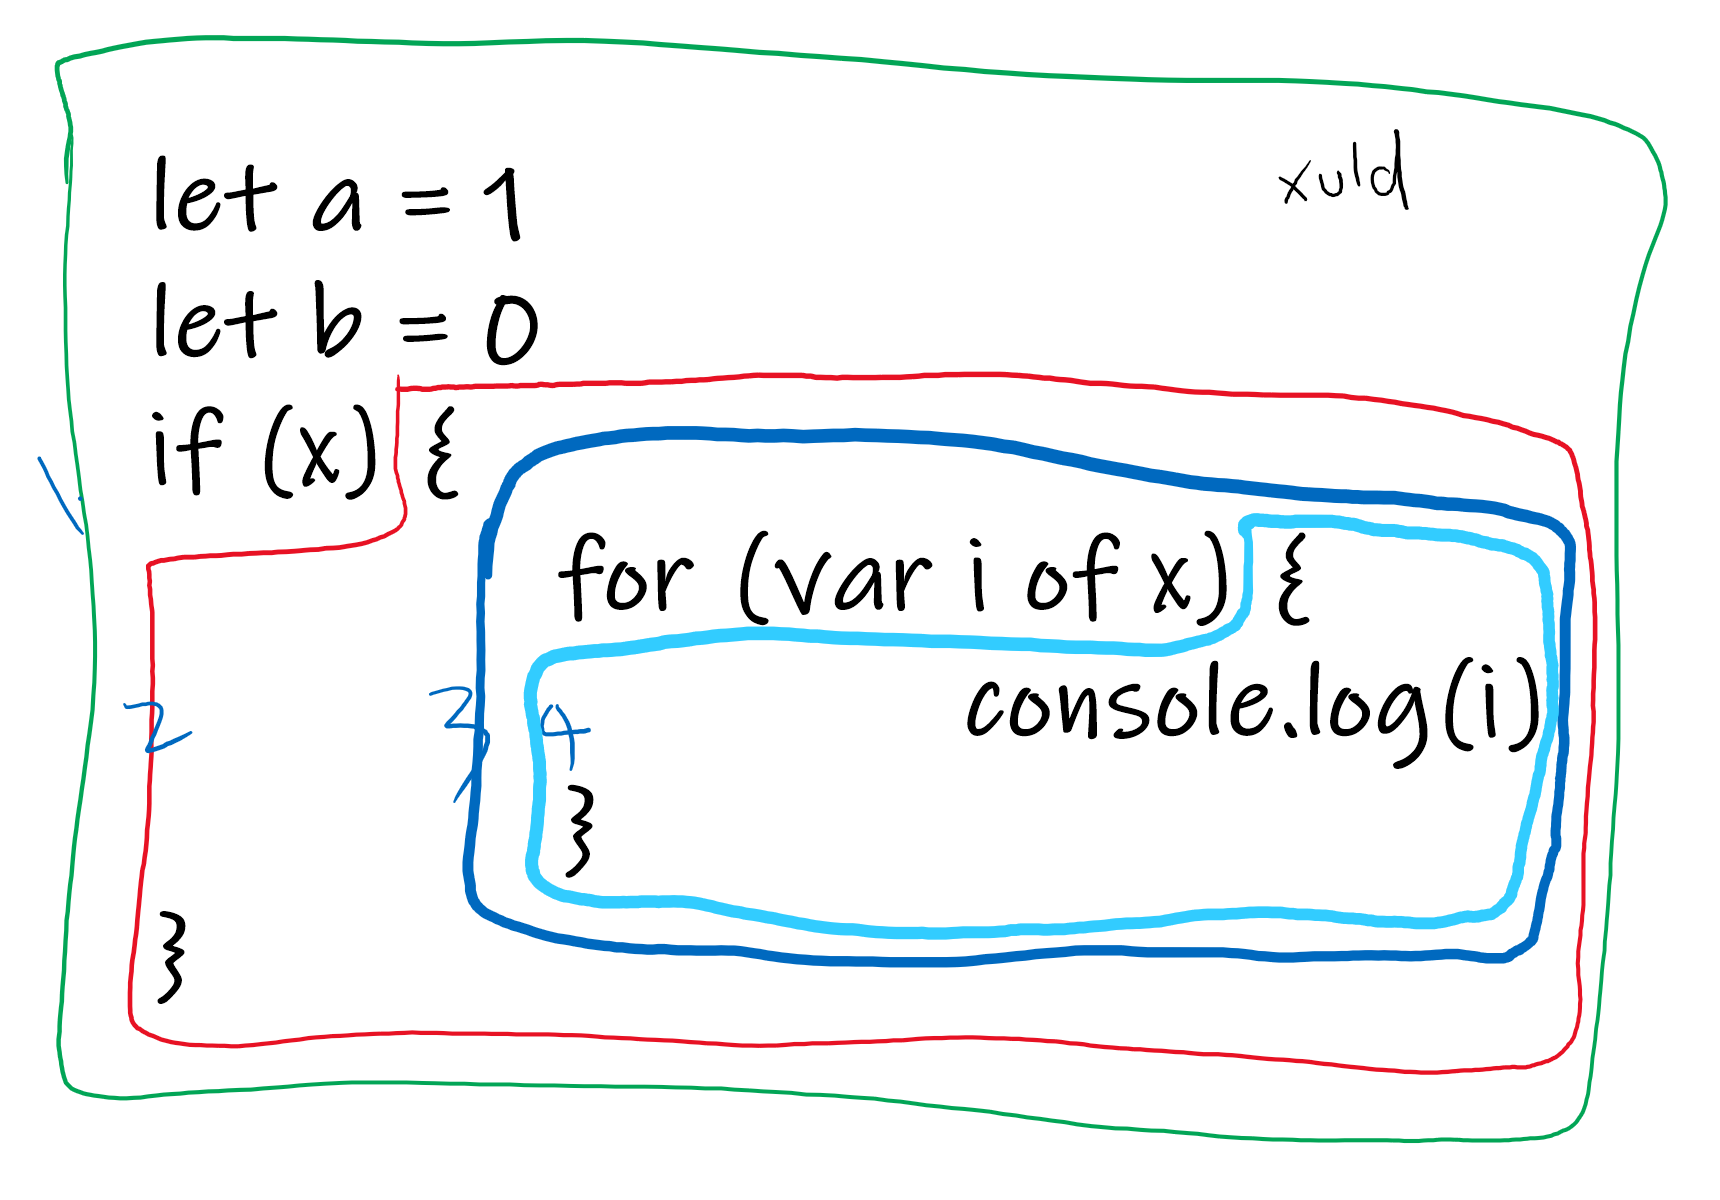 xuld
let a = 1
let b = 0
if (x) {
for (var i of x) {
console.log(i)
}
}
1
2
3
4